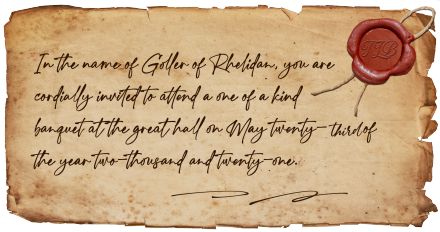 In the name of Goller of Rhelidan, you are
cordially invited to attend a one of a kind
banquet at the great hall on May twenty-third of
the year two-thousand and twenty-one.